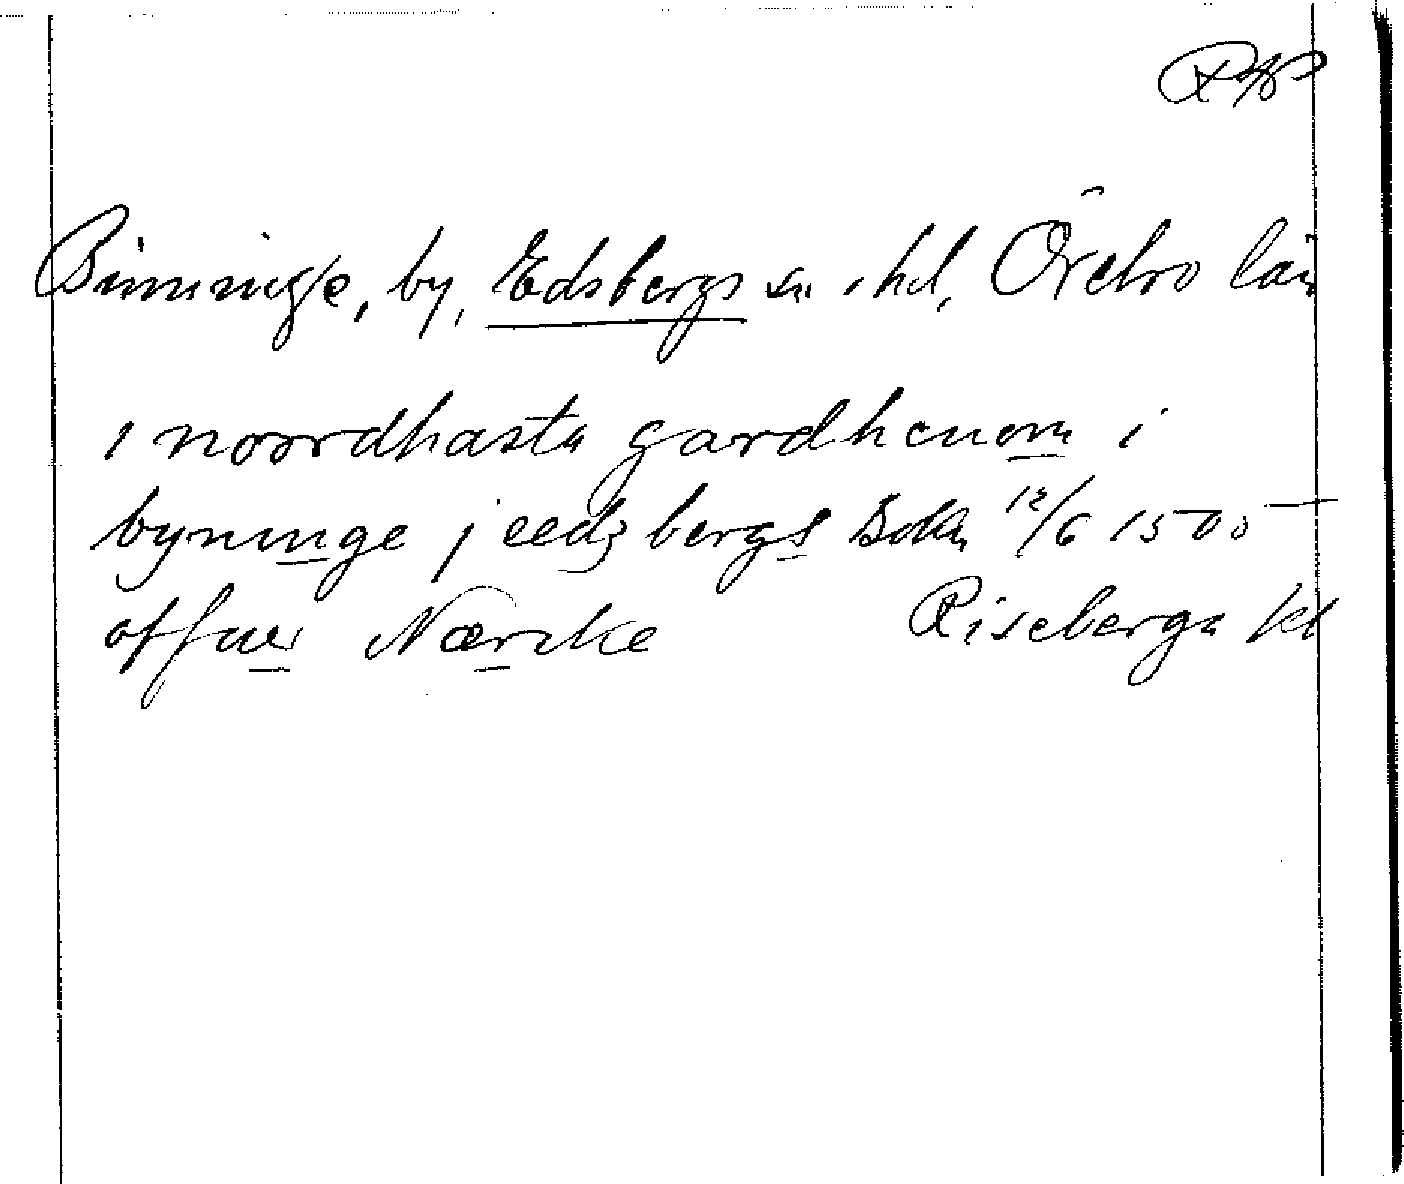 RAP
Binninge, by, Edsbergs sn. o. hd, Örebro län
i noordhasta gardhenom i
byninge j eedzbergs Sokn 12/6 1500
offuer Nærcke Riseberga kl